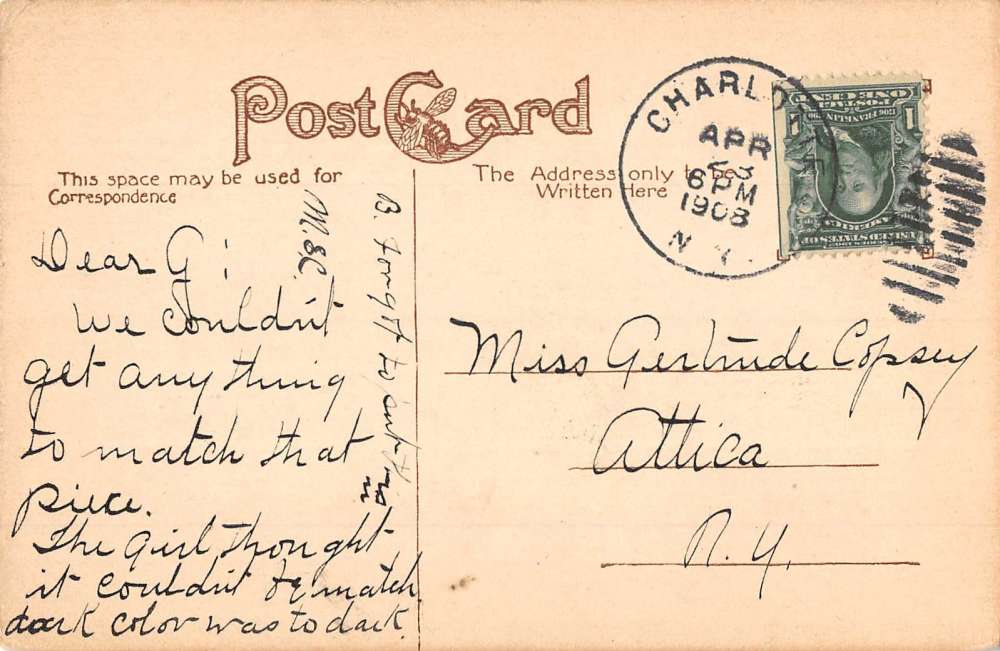 Post Card
This space may be used for
Correspondence
The Address only to be
Written Here
CHARLO
APR
23
6 PM
1908
N Y.
ONE CENT
1 1
UNITED STATES OF
AMERICA
Dear G:
We couldn't
get any thing
to match that
piece.
The girl thought
it couldn't be match
dark color was to dark.
M.EC.
B. forgot to
Miss Gertrude Copsey
Attica
N. Y.